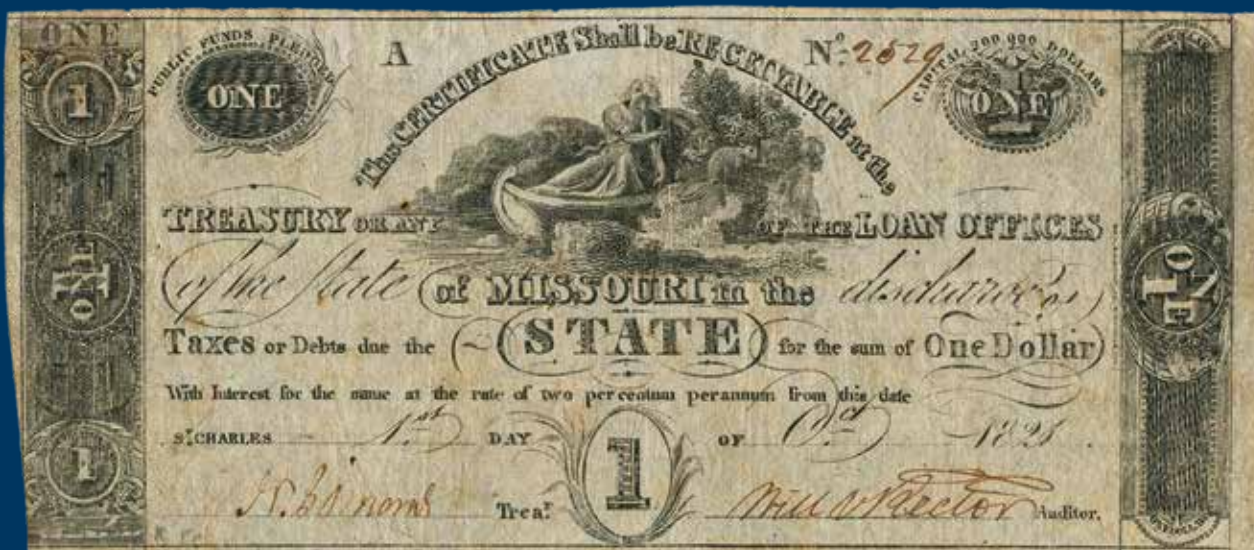 ONE
1
ONE
1
PUBLIC FUNDS PLEDGED
ONE
A
This CERTIFICATE Shall be RECEIVABLE at the
No. 2529
CAPITAL 200 000 DOLLARS
ONE
TREASURY OR ANY OF THE LOAN OFFICES
of the State of MISSOURI in the discharge of
Taxes or Debts due the STATE for the sum of One Dollar
With Interest for the same at the rate of two per centum per annum from this date
ST. CHARLES 1st DAY OF Oct 1821
1
N. Simonds Trear.
Will V Rector Auditor.
ONE
1